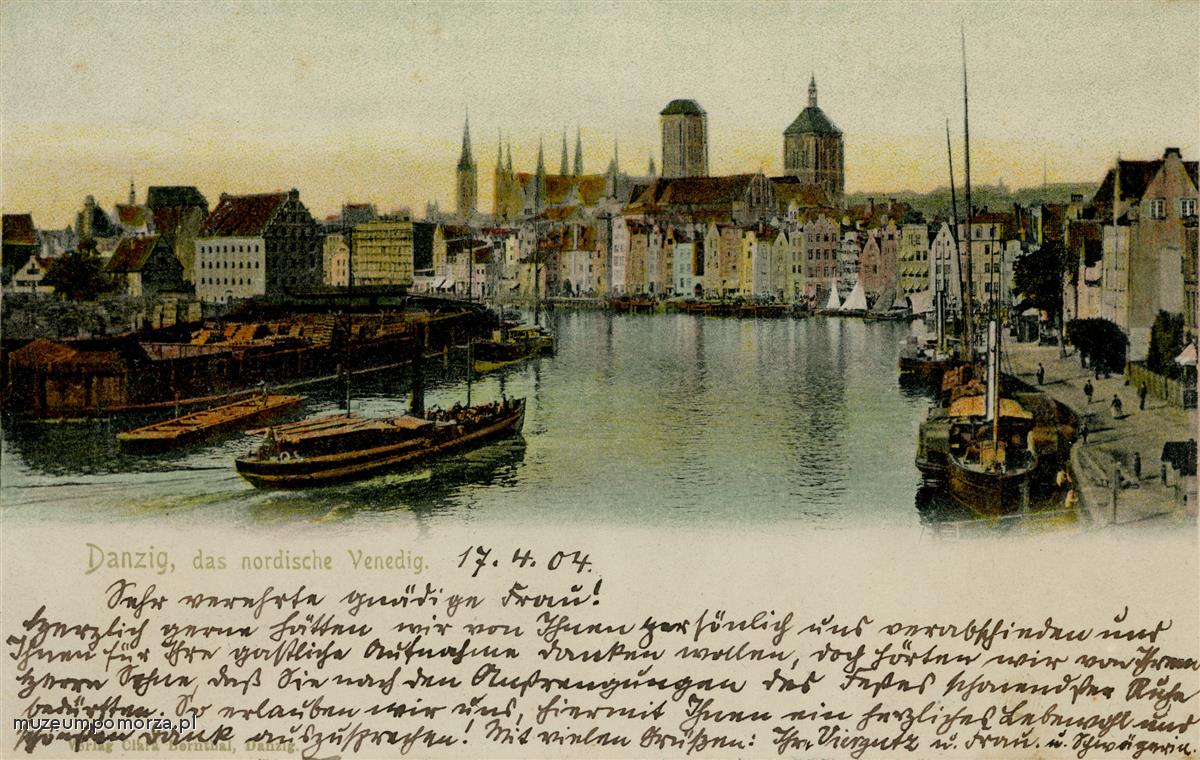 Danzig, das nordische Venedig. 17.4.04.
Sehr verehrte gnädige Frau!
Herzlich gerne hätten wir von Ihnen persönlich uns verabschieden und
Ihnen für Ihre gastliche Aufnahme danken wollen, doch hörten wir von Ihrem
Herrn Sohne, daß Sie nach den Anstrengungen des Festes schonendster Ruhe
bedürften. So erlauben wir uns, hiermit Ihnen ein herzliches Lebewohl und
schönsten Dank auszusprechen! Mit vielen Grüßen: Ihr u. Frau. u. Schwägerin.
muzeumpomorza.pl
Verlag Clara Bernthal, Danzig.